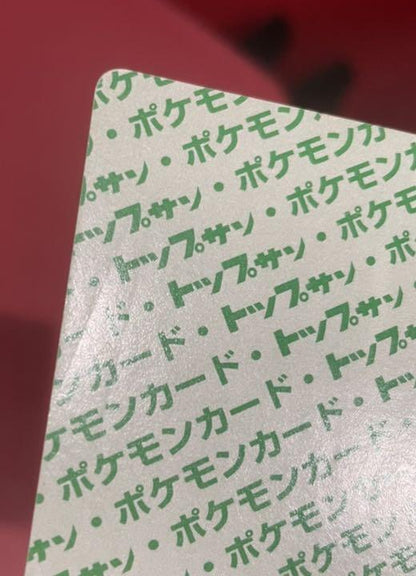 ケ
・ポケモン
サン・ポケモン
ップサン・ポケモンカ
トップサン・ポケモン
・トップサン・ポケ
ンカード・トップサン・ポ
ケモンカード・トップサン・
・ポケモンカード・トップサ
サン・ポケモンカード・ト
・ポケモンカード
ポケモン